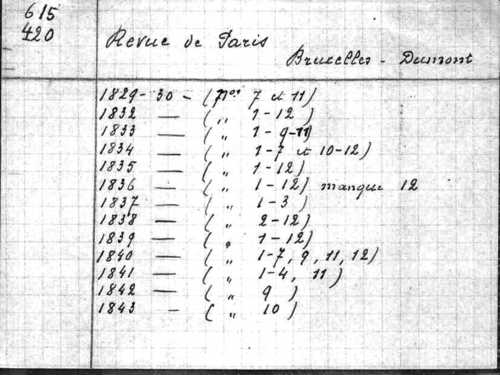 615
420
Revue de Paris
Bruxelles - Dumont
1829-30 - (Nos 7 et 11)
1832 — (" 1-12)
1833 — (" 1-9-11)
1834 — (" 1-7 et 10-12)
1835 — (" 1-12)
1836 — (" 1-12) manque 12
1837 — (" 1-3)
1838 — (" 2-12)
1839 — (" 1-12)
1840 — (" 1-7, 9, 11, 12)
1841 — (" 1-4, 11)
1842 — (" 9)
1843 — (" 10)